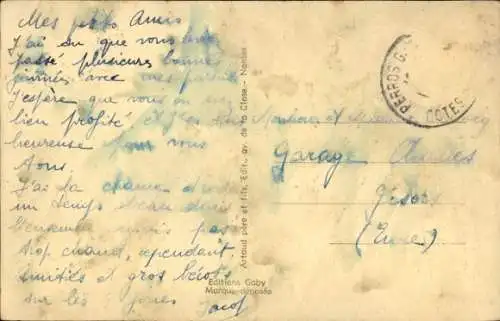 Mes petits Amis
J'ai su que vous avez
passé plusieurs bonnes
journées avec vos
J'espère que vous en avez
bien profité et j'en suis
heureuse pour vous
tous.
J'ai la chance d'avoir
un temps beau dans
l'ensemble mais pas
trop chaud, cependant.
Amitiés et gros bécots
sur les joues
Artaud père et fils, Edit., av. de la Close - Nantes
Editions Gaby
Marque déposée
PERROS G
COTES
Monsieur et
Garage
Gisors
(Eure)